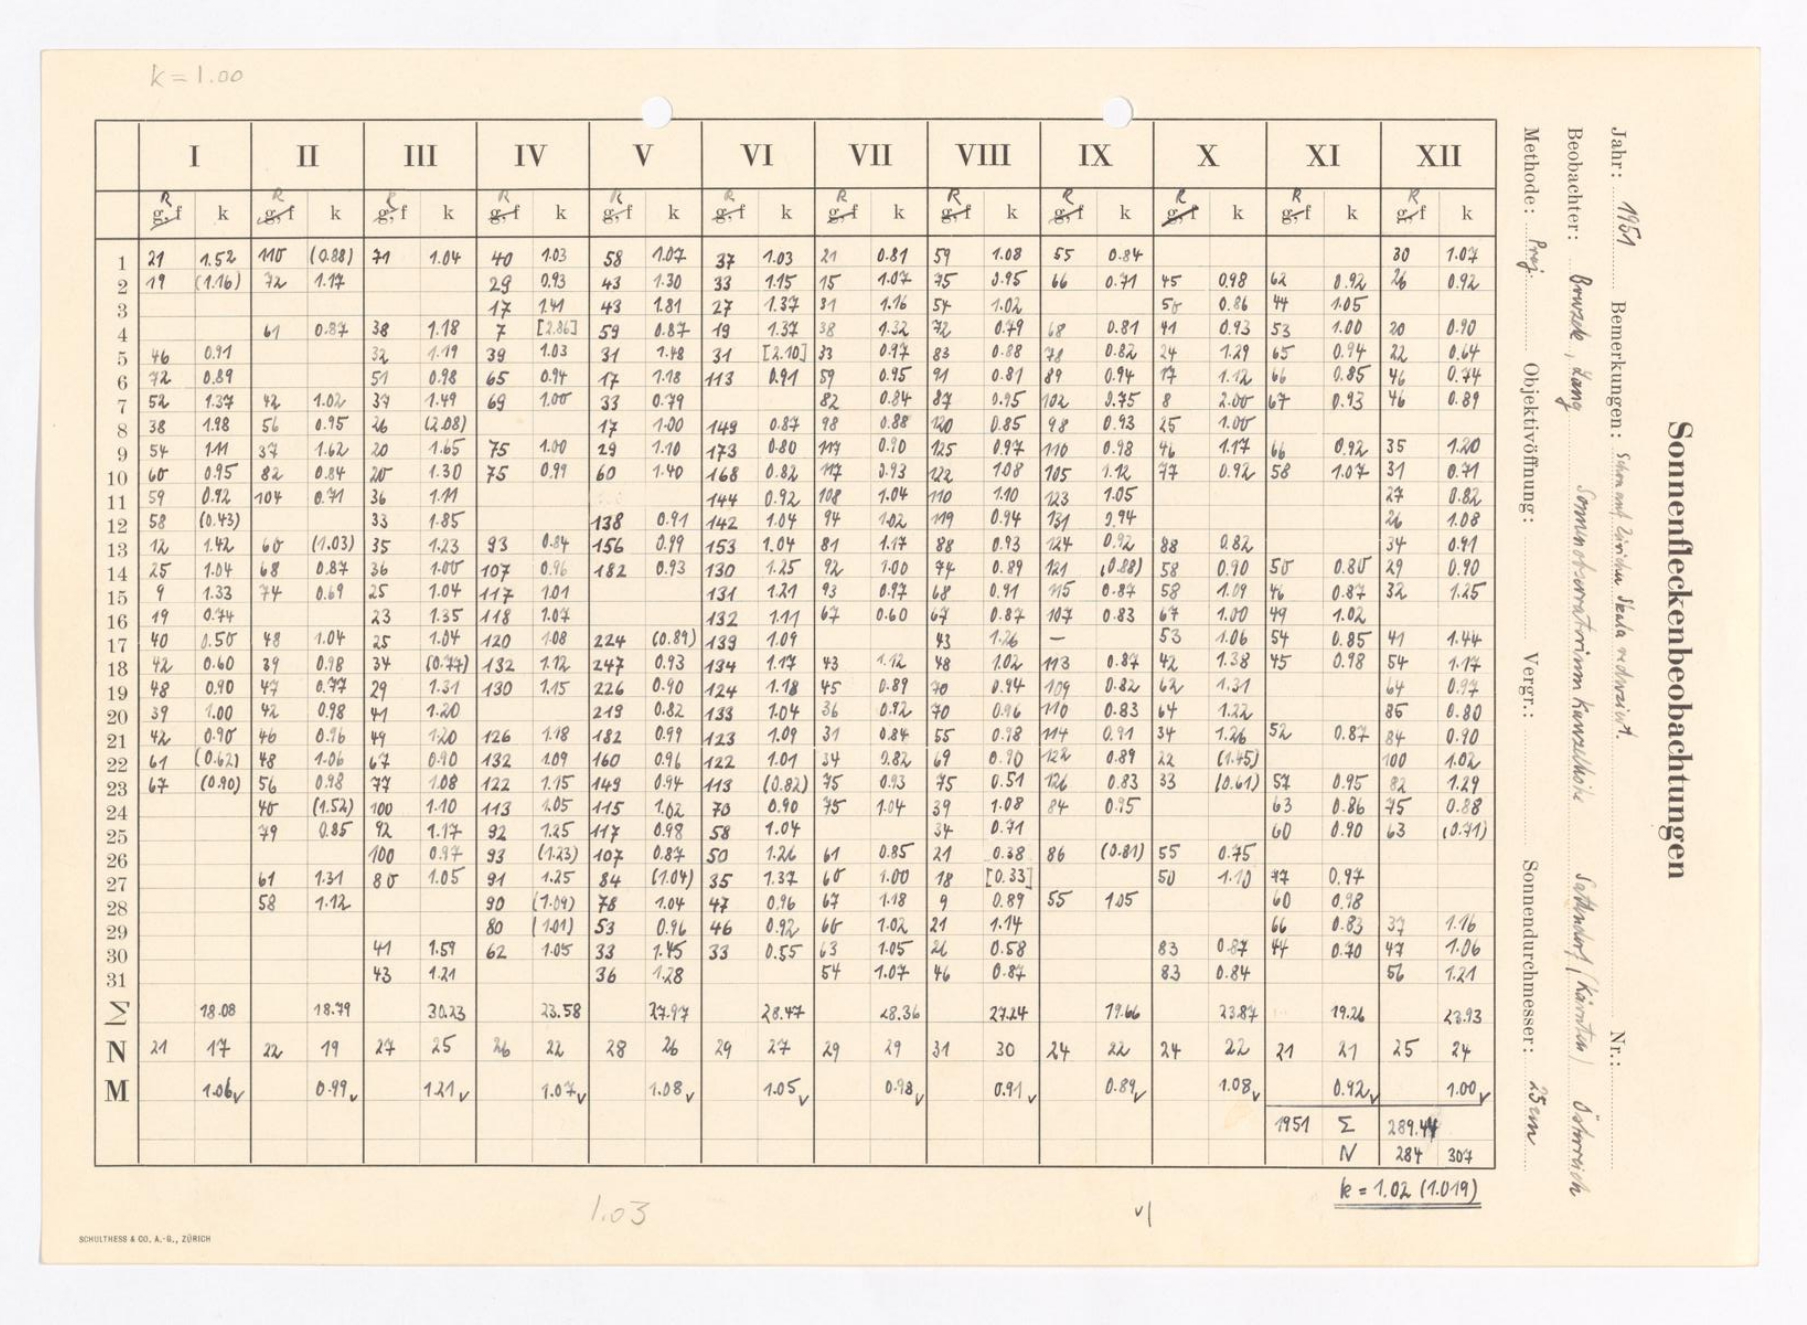 k = 1.00
Sonnenfleckenbeobachtungen
Jahr: 1951 Bemerkungen: Schon auf Zürcher Skala reduziert. Nr.:
Beobachter: Lang Sonnenobservatorium Kanzelhöhe Sattendorf (Kärnten) Österreich
Methode: Proj. Objektivöffnung: Vergr.: Sonnendurchmesser: 25 cm
I II III IV V VI VII VIII IX X XI XII
R R R R R R R R R R R R
g, f k g, f k g, f k g, f k g, f k g, f k g, f k g, f k g, f k g, f k g, f k g, f k
1 21 1.52 110 (0.88) 71 1.04 40 1.03 58 1.07 37 1.03 21 0.81 59 1.08 55 0.84 30 1.07
2 19 (1.16) 72 1.17 29 0.93 43 1.30 33 1.15 15 1.07 75 0.95 66 0.71 45 0.98 62 0.92 26 0.92
3 17 1.41 43 1.81 27 1.37 31 1.16 54 1.02 50 0.86 44 1.05
4 61 0.87 38 1.18 7 [2.86] 59 0.87 19 1.37 38 1.32 72 0.79 68 0.81 41 0.93 53 1.00 20 0.90
5 46 0.91 32 1.19 39 1.03 31 1.48 31 [2.10] 33 0.97 83 0.88 78 0.82 24 1.29 65 0.94 22 0.64
6 72 0.89 51 0.98 65 0.94 17 1.18 113 0.91 59 0.95 91 0.81 89 0.94 17 1.12 66 0.85 46 0.74
7 52 1.37 42 1.02 37 1.49 69 1.00 33 0.79 82 0.84 87 0.95 102 0.75 8 2.00 67 0.93 46 0.89
8 38 1.98 56 0.95 26 (2.08) 17 1.00 149 0.87 98 0.88 120 0.85 98 0.93 25 1.00
9 54 1.11 37 1.62 20 1.65 75 1.00 29 1.10 173 0.80 117 0.90 125 0.97 110 0.98 46 1.17 66 0.92 35 1.20
10 60 0.95 82 0.84 20 1.30 75 0.99 60 1.40 168 0.82 117 0.93 122 1.08 105 1.12 77 0.92 58 1.07 31 0.71
11 59 0.92 104 0.71 36 1.11 144 0.92 108 1.04 110 1.10 123 1.05 27 0.82
12 58 (0.43) 33 1.85 138 0.91 142 1.04 94 1.02 119 0.94 131 0.94 26 1.08
13 12 1.42 60 (1.03) 35 1.23 93 0.84 156 0.99 153 1.04 81 1.17 88 0.93 124 0.92 88 0.82 34 0.91
14 25 1.04 68 0.87 36 1.00 107 0.96 182 0.93 130 1.25 92 1.00 74 0.89 121 (0.88) 58 0.90 50 0.80 29 0.90
15 9 1.33 74 0.69 25 1.04 117 1.01 131 1.21 93 0.97 68 0.91 115 0.87 58 1.09 46 0.87 32 1.25
16 19 0.74 23 1.35 118 1.07 132 1.11 67 0.60 67 0.87 107 0.83 67 1.00 49 1.02
17 40 0.50 48 1.04 25 1.04 120 1.08 224 (0.89) 139 1.09 43 1.26 — 53 1.06 54 0.85 41 1.44
18 42 0.60 39 0.98 34 (0.77) 132 1.12 247 0.93 134 1.17 43 1.12 48 1.02 113 0.87 42 1.38 45 0.98 54 1.17
19 48 0.90 47 0.77 29 1.31 130 1.15 226 0.90 124 1.18 45 0.89 70 0.94 109 0.82 62 1.31 64 0.97
20 39 1.00 42 0.98 41 1.20 219 0.82 133 1.04 36 0.92 70 0.96 110 0.83 64 1.22 85 0.80
21 42 0.90 46 0.96 49 1.20 126 1.18 182 0.99 123 1.09 31 0.84 55 0.98 114 0.91 34 1.26 52 0.87 84 0.90
22 61 (0.62) 48 1.06 67 0.90 132 1.09 160 0.96 122 1.01 34 0.82 69 0.90 122 0.89 22 (1.45) 100 1.02
23 67 (0.90) 56 0.98 77 1.08 122 1.15 149 0.94 113 (0.82) 75 0.93 75 0.51 126 0.83 33 (0.61) 57 0.95 82 1.29
24 40 (1.52) 100 1.10 113 1.05 115 1.02 70 0.90 75 1.04 39 1.08 84 0.95 63 0.86 75 0.88
25 79 0.85 92 1.17 92 1.25 117 0.98 58 1.04 34 0.71 60 0.90 63 (0.71)
26 100 0.97 93 (1.23) 107 0.87 50 1.26 61 0.85 21 0.38 86 (0.81) 55 0.75
27 61 1.31 80 1.05 91 1.25 84 (1.04) 35 1.37 60 1.00 18 [0.33] 50 1.10 47 0.97
28 58 1.12 90 (1.09) 78 1.04 47 0.96 67 1.18 9 0.89 55 1.05 60 0.98
29 80 (1.01) 53 0.96 46 0.92 60 1.02 21 1.14 66 0.83 37 1.16
30 41 1.59 62 1.05 33 1.45 33 0.55 63 1.05 26 0.58 83 0.87 44 0.70 47 1.06
31 43 1.21 36 1.28 54 1.07 46 0.87 83 0.84 56 1.21
Σ 18.08 18.79 30.23 23.58 27.97 28.47 28.36 27.24 19.66 23.87 19.26 23.93
N 21 17 22 19 27 25 26 22 28 26 29 27 29 29 31 30 24 22 24 22 21 21 25 24
M 1.06 0.99 1.21 1.07 1.08 1.05 0.98 0.91 0.89 1.08 0.92 1.00
1951 Σ 289.44
N 284 307
k = 1.02 (1.019)
1.03
SCHULTHESS & CO. A.-G., ZÜRICH